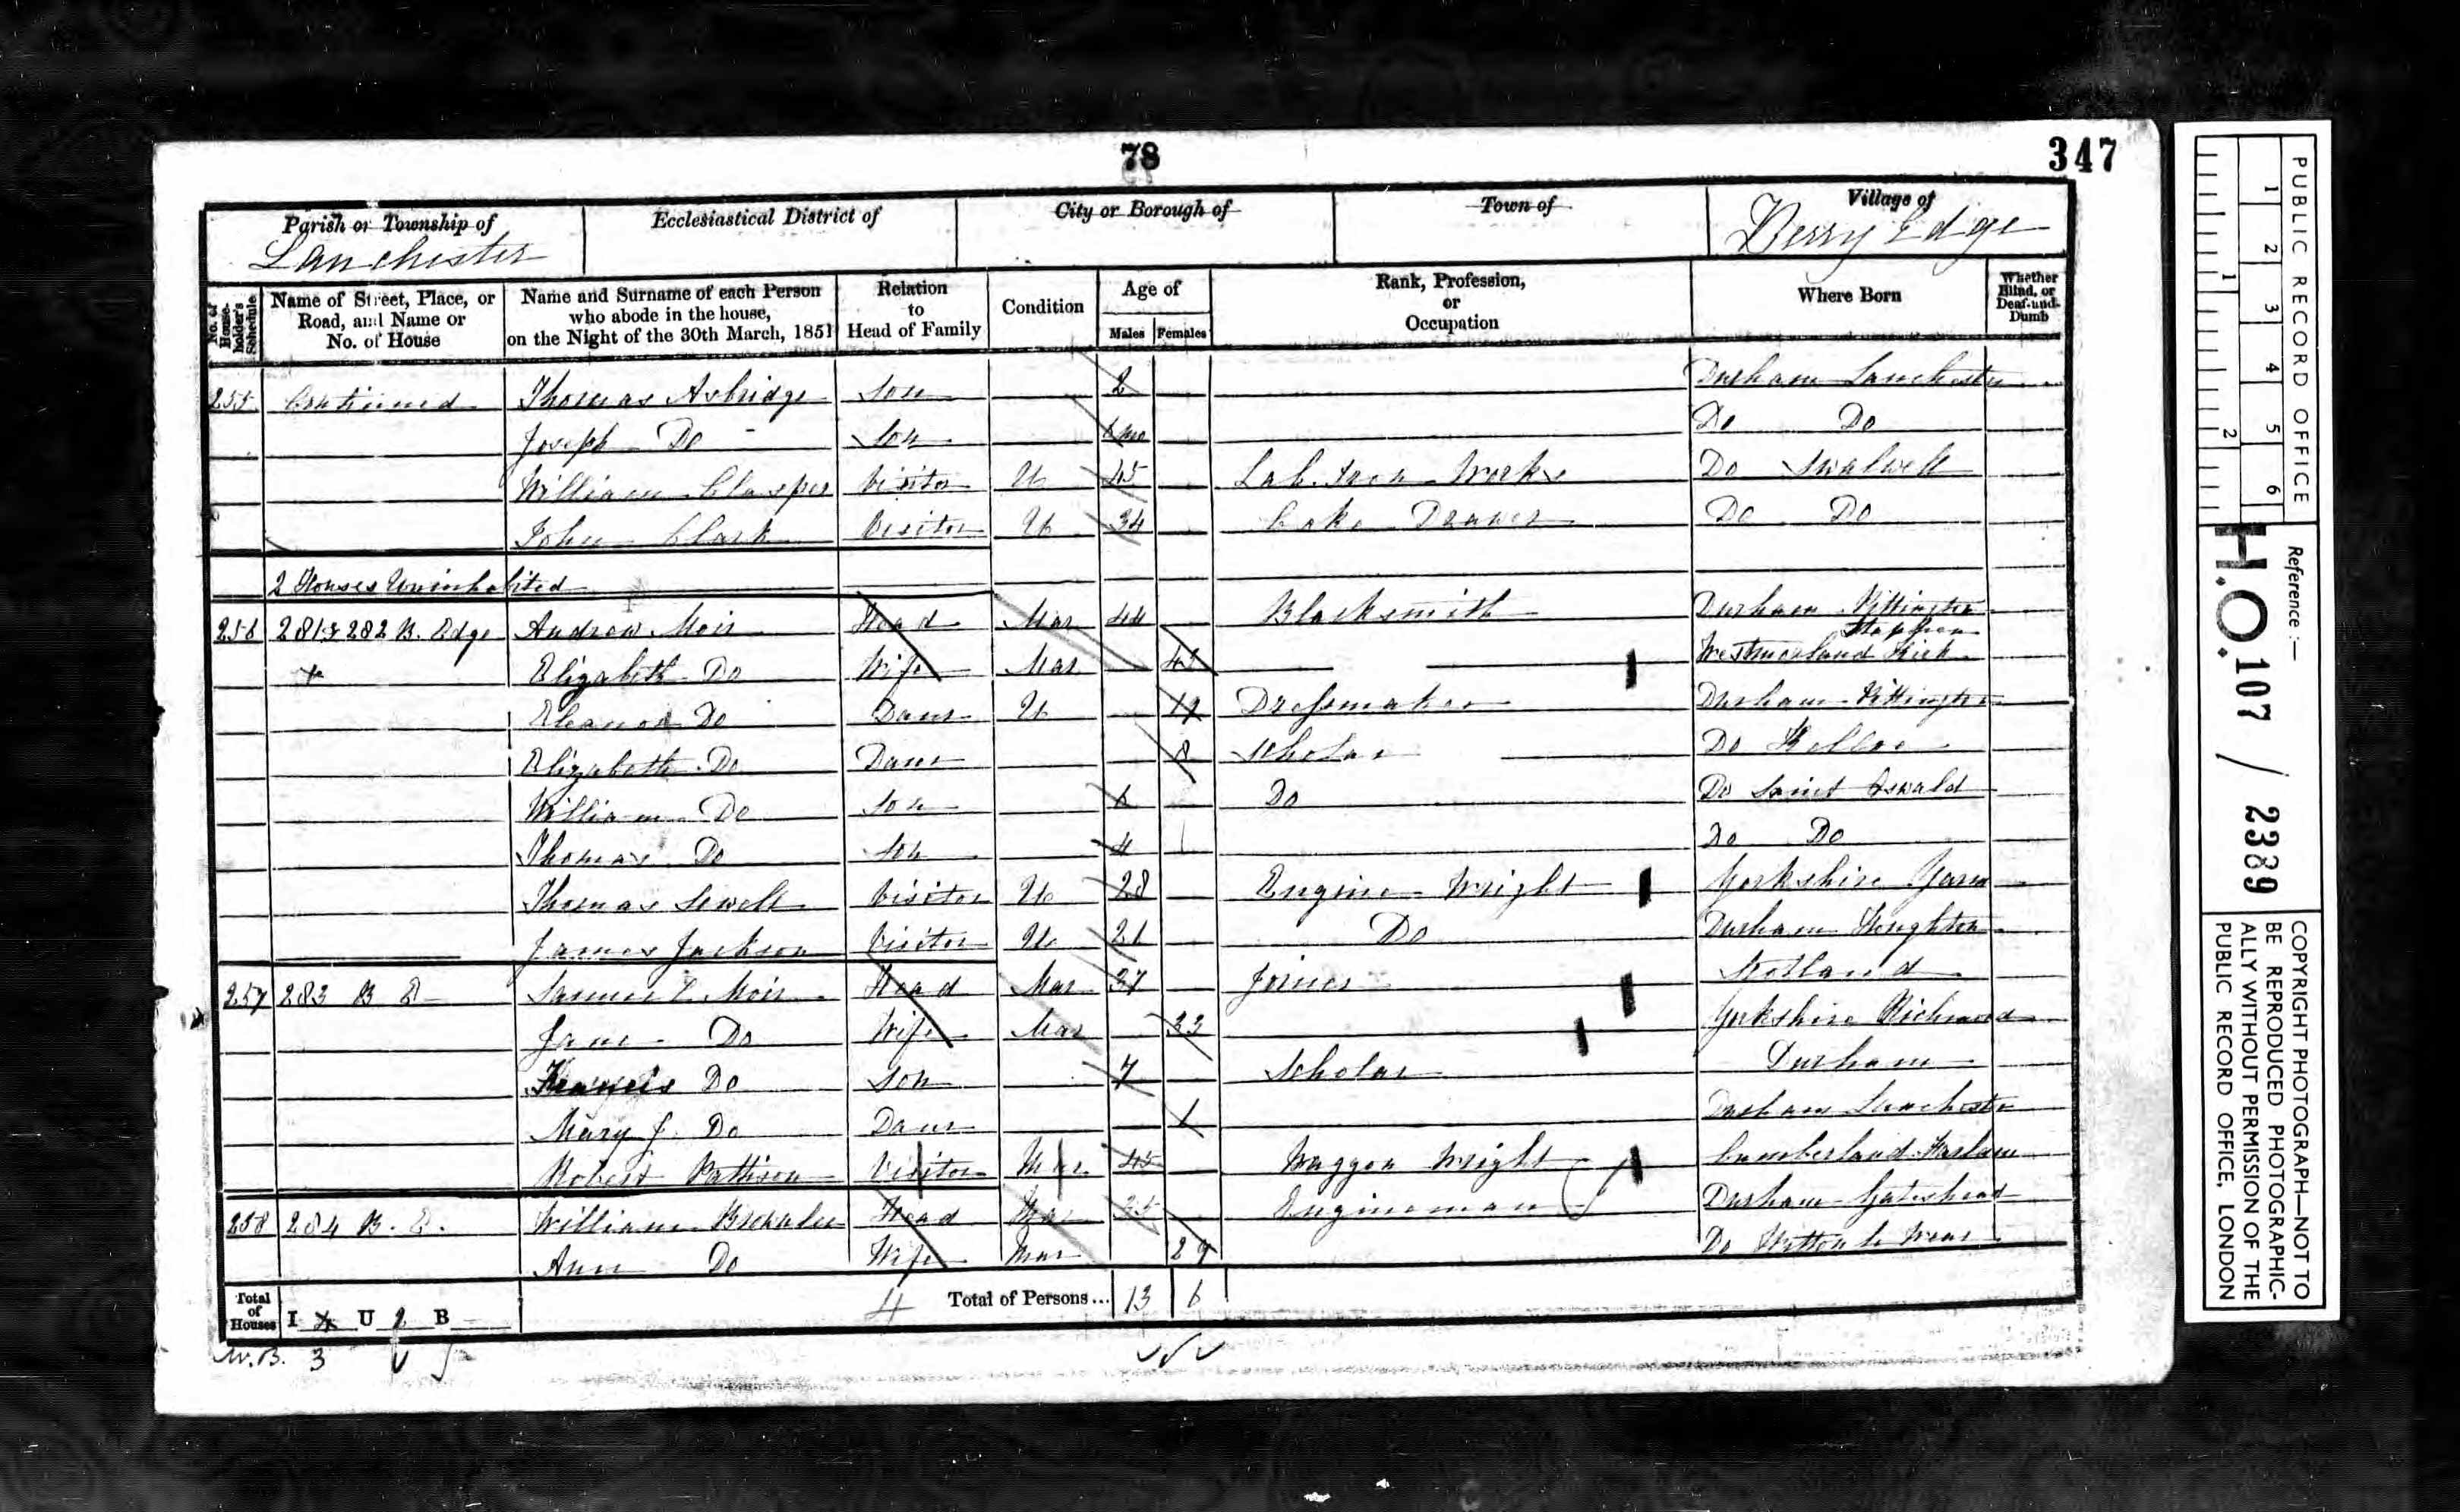 78
347
Parish or Township of
Lanchester
Ecclesiastical District of
City or Borough of
Town of
Village of
Berry Edge
No. of House-holder's Schedule
Name of Street, Place, or Road, and Name or No. of House
Name and Surname of each Person who abode in the house, on the Night of the 30th March, 1851
Relation to Head of Family
Condition
Age of
Males Females
Rank, Profession, or Occupation
Where Born
Whether Blind, or Deaf-and-Dumb
255 Continued Thomas Asbridge Son 2 Durham Lanchester
Joseph Do Son 6 mo Do Do
William Clasper Visitor U 45 Lab. Iron Works Do Swalwell
John Clark Visitor U 34 Coke Drawer Do Do
2 Houses Uninhabited
256 281 & 282 B. Edge Andrew Moir Head Mar 44 Blacksmith Durham Pittington
Elizabeth Do Wife Mar 43 Westmorland Kirk
Eleanor Do Daur U 19 Dressmaker Durham Pittington
Elizabeth Do Daur 8 Scholar Do Kelloe
William Do Son 6 Do Do Saint Oswald
Thomas Do Son 4 Do Do
Thomas Sewell Visitor U 28 Engine Wright Yorkshire Yarm
James Jackson Visitor U 21 Do Durham Houghton
257 283 B E Samuel Moir Head Mar 37 Joiner Scotland
Jane Do Wife Mar 33 Yorkshire Richmond
Francis Do Son 7 Scholar Durham
Mary J. Do Daur 1 Durham Lanchester
Robert Pattison Visitor Mar 45 Waggon Wright Cumberland
258 284 B. E. William Head Mar 35 Engineman Durham Gateshead
Ann Do Wife Mar 29 Do Witton le Wear
Total of Houses I 4 U 2 B
4 Total of Persons... 13 6
3
PUBLIC RECORD OFFICE
1 2 3 4 5 6
1 2
Reference:-
H.O. 107 / 2389
COPYRIGHT PHOTOGRAPH—NOT TO
BE REPRODUCED PHOTOGRAPHIC-
ALLY WITHOUT PERMISSION OF THE
PUBLIC RECORD OFFICE, LONDON